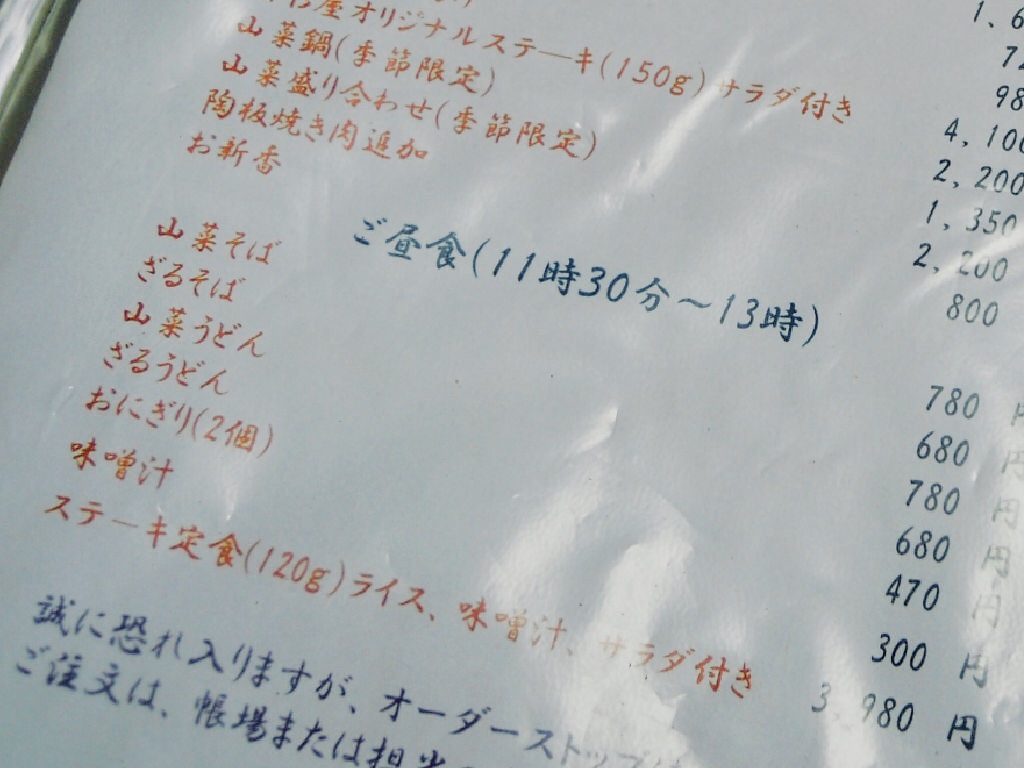 屋オリジナルステーキ(150g)サラダ付き 4,100
山菜鍋(季節限定) 2,200
山菜盛り合わせ(季節限定) 1,350
陶板焼き肉追加 2,200
お新香 800
ご昼食(11時30分～13時)
山菜そば 780 円
ざるそば 680 円
山菜うどん 780 円
ざるうどん 680 円
おにぎり(2個) 470 円
味噌汁 300 円
ステーキ定食(120g)ライス、味噌汁、サラダ付き 3,980 円
誠に恐れ入りますが、オーダーストップ
ご注文は、帳場または担当